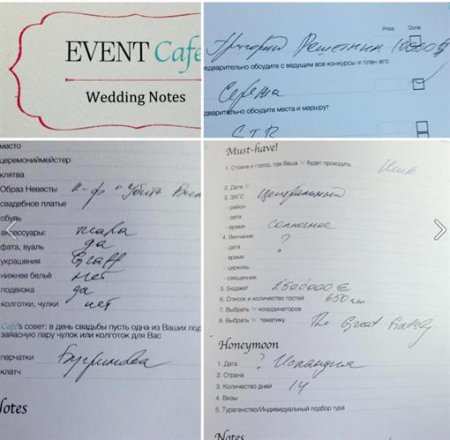 EVENT Cafe
Wedding Notes
Price Done
Григорий Решетник 10000$
едварительно обсудите с ведущим все конкурсы и план его
Сережа
дварительно обсудите места и маршрут
СТР
масто
церемониймейстер
клятва
Образ Невесты к-ф "Убить Билла
свадебное платье
обувь
аксессуары тиара
фата, вуаль да
украшения Graff
нижнее бельё нет
подвязка да
колготки, чулки нет
Café's совет: в день свадьбы пусть одна из Ваших под
запасную пару чулок или колготок для Вас
перчатки
клатч
Notes
Must-have!
1. Страна и город, где Ваша будет проходить
2. Дата
3. ЗАГС Центральный
- район
- дата
- время солнечное
4. Венчание ?
- дата
- время
- церковь
- священник
5. Бюджет 2500000 €
6. Список и количество гостей 650 чел
7. Выбрать координаторов
8. Выбрать тематику The Great Gatsby
Honeymoon
1. Дата ?
2. Страна Исландия
3. Количество дней 14
4. Визы
5. Турагенство/Индивидуальный подбор тура
Notes